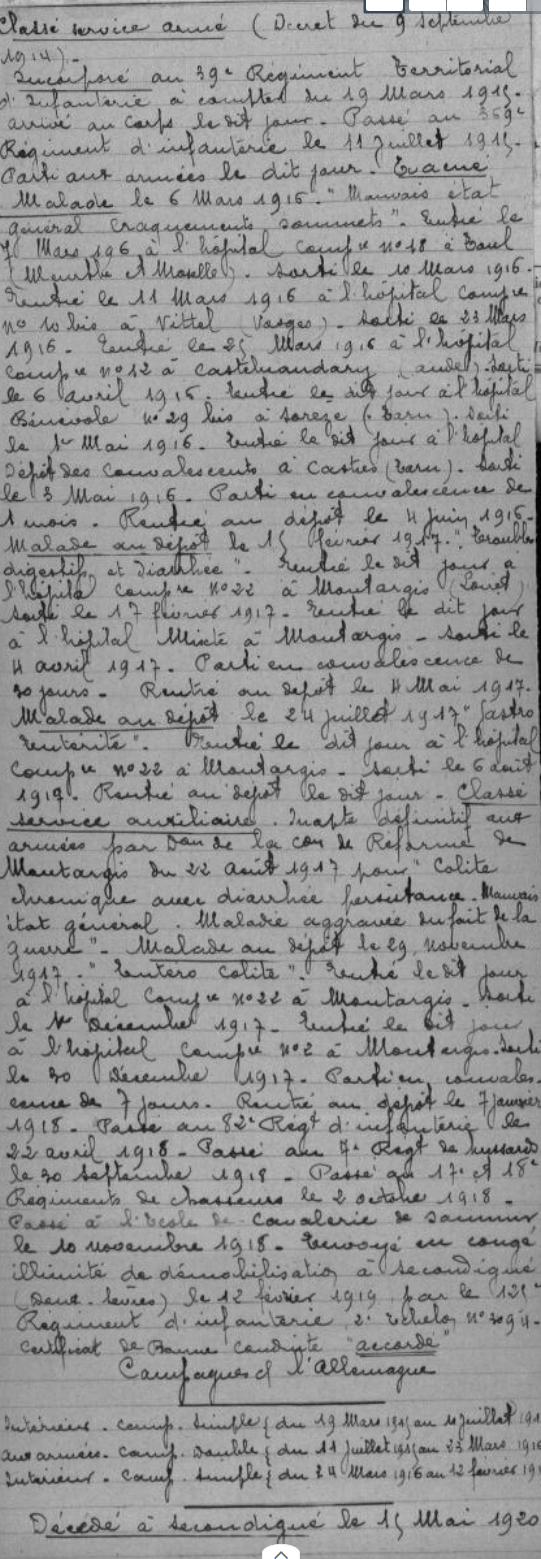 Classé service armé (Décret du 9 Septembre
1914).
Incorporé au 39e Régiment Territorial
d'Infanterie à compter du 19 Mars 1915.
arrivé au Corps le dit jour. Passé au 369e
Régiment d'infanterie le 11 Juillet 1915.
Parti aux armées le dit jour. Evacué
Malade le 6 Mars 1916. "Mauvais état
général craquements sommets". Entré le
7 Mars 196 à l'hôpital compre no 18 à Toul
(Meurthe et Moselle). Sorti le 10 Mars 1916.
Entré le 11 Mars 1916 à l'hôpital compre
no 10 bis à Vittel (Vosges). Sorti le 23 Mars
1916. Entré le 25 Mars 1916 à l'hôpital
compre no 12 à Castelnaudary (Aude). Sorti
le 6 avril 1916. Entré le dit jour à l'hôpital
Bénévole no 29 bis à Soreze (Tarn). Sorti
le 1er Mai 1916. Entré le dit jour à l'hôpital
Dépôt des convalescents à Castres (Tarn). Sorti
le 3 Mai 1916. Parti en convalescence de
1 mois. Rentré au dépôt le 4 juin 1916.
Malade au dépôt le 15 février 1917. "Troubles
digestifs et Diarrhée". Entré le dit jour à
l'hôpital compre no 22 à Montargis (Loiret)
Sorti le 17 février 1917. Entré le dit jour
à l'hôpital Mixte à Montargis. Sorti le
4 avril 1917. Parti en convalescence de
30 jours. Rentré au dépôt le 4 Mai 1917.
Malade au dépôt le 24 juillet 1917 "Gastro
Entérite". Entré le dit jour à l'hôpital
Compre no 22 à Montargis. Sorti le 6 août
1917. Rentré au dépôt le dit jour. Classé
service auxiliaire. Inapte définitif aux
armées par Don de la Con de Réforme de
Montargis du 22 août 1917 pour "Colite
chronique avec diarrhée persistance. Mauvais
état général. Maladie aggravée du fait de la
guerre". Malade au dépôt le 29 novembre
1917. "Entéro colite". Entré le dit jour
à l'hôpital Compre no 22 à Montargis. Sorti
le 1er Décembre 1917. Entré le dit jour
à l'hôpital compre no 2 à Montargis. Sorti
le 30 Décembre 1917. Parti en convales-
cence de 7 jours. Rentré au dépôt le 7 janvier
1918. Passé au 82e Régt d'infanterie le
22 avril 1918. Passé au 7e Régt de hussards
le 30 septembre 1918. Passé au 17e et 18e
Régiments de chasseurs le 2 octobre 1918.
Passé à l'Ecole de Cavalerie de Saumur
le 10 novembre 1918. Envoyé en congé
illimité de démobilisation à Secondigné
(Deux-Sèvres) le 12 février 1919 par le 125e
Régiment d'infanterie, 2e Echelon no 3094.
Certificat de Bonne conduite "accordé"
Campagnes ct l'Allemagne
Intérieur. Camp. Simple { du 19 Mars 1915 au 10 juillet 191
aux armées. Camp. Double { du 11 juillet 1915 au 23 Mars 1916
Intérieur. Camp. Simple { du 24 Mars 1916 au 12 février 191
Décédé à Secondigné le 15 Mai 1920